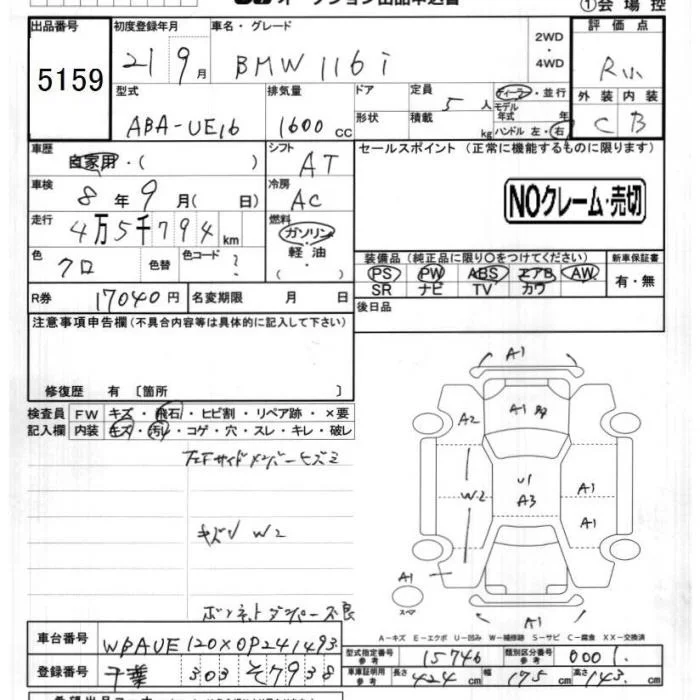 オークション出品申込書
①会場控
出品番号 5159
初度登録年月 21 9月
車名・グレード BMW 116i
2WD・4WD
評価点 R小
型式 ABA-UE16
排気量 1600 CC
ドア 形状
定員 5人
積載 kg
ディーラー・並行
モデル年式 年
ハンドル 左・右
外装 C 内装 B
車歴 自家用・( )
シフト AT
セールスポイント(正常に機能するものに限ります)
車検 8年9月( 日)
冷房 AC
NOクレーム・売切
走行 4万5千794km
燃料 ガソリン・軽油・( )
色 クロ 色替 色コード ?
装備品(純正品に限り○をつけてください) 新車保証書
PS PW ABS エアB AW 有・無
SR ナビ TV カワ
R券 17040円 名変期限 月 日
後日品
注意事項申告欄(不具合内容等は具体的に記入して下さい)
修復歴 有 〔箇所 〕
検査員 FW キズ・飛石・ヒビ割・リペア跡・×要
記入欄 内装 キズ・汚れ・コゲ・穴・スレ・キレ・破レ
左Fサイドメンバーヒズミ
キズ小 W2
ボンネットダンパー不良
A1
A1
A2
U1
A3
W2
A1
A1
A1
スペア
A1
A-キズ E-エクボ U-凹み W-補修跡 S-サビ C-腐食 XX-交換済
車台番号 WBAUE120X0P241493
型式指定番号 参考 15746 類別区分番号 参考 0001
登録番号 千葉 303 そ7938
車庫証明用 参考 長さ 424cm 幅 175cm 高さ 143cm